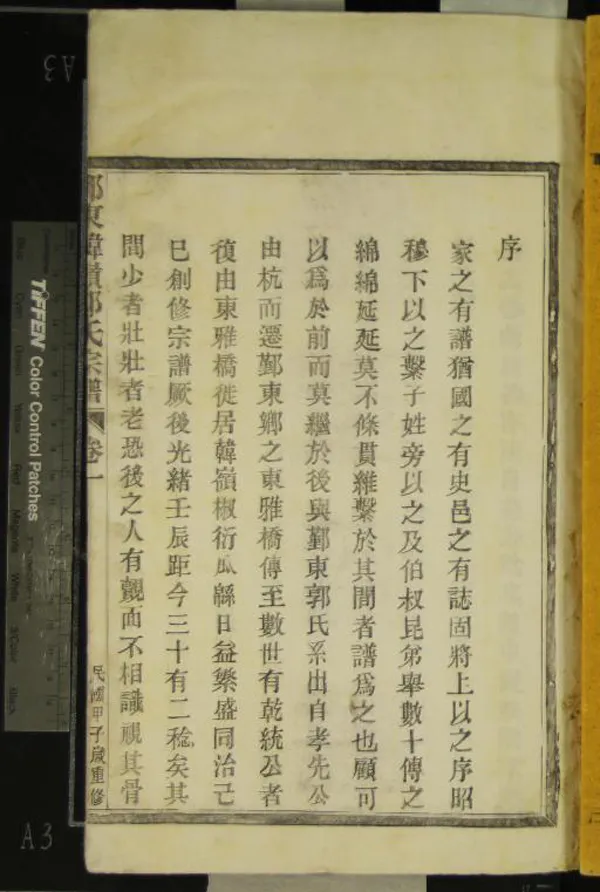 序
家之有譜猶國之有史邑之有誌固將上以之序昭
穆下以之繫子姓旁以之及伯叔昆弟舉數十傳之
綿綿延延莫不條貫維繫於其間者譜爲之也顧可
以爲於前而莫繼於後與鄞東郭氏系出自孝先公
由杭而遷鄞東鄉之東雅橋傳至數世有乾統公者
復由東雅橋徙居韓嶺椒衍瓜緜日益繁盛同治己
巳創修宗譜厥後光緒壬辰距今三十有二稔矣其
間少者壯壯者老恐後之人有覿面不相識視其骨
東韓嶺郭氏宗譜 卷一 民國甲子歲重修
TIFFEN Color Control Patches
A3
A3